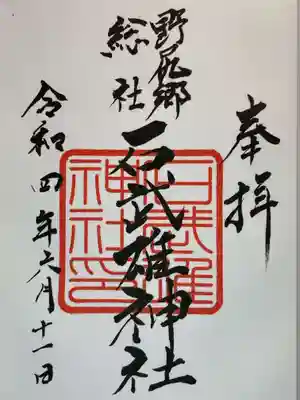 奉拝
野尻郷
総社
石武雄神社
石武雄
神社印
令和四年六月十一日